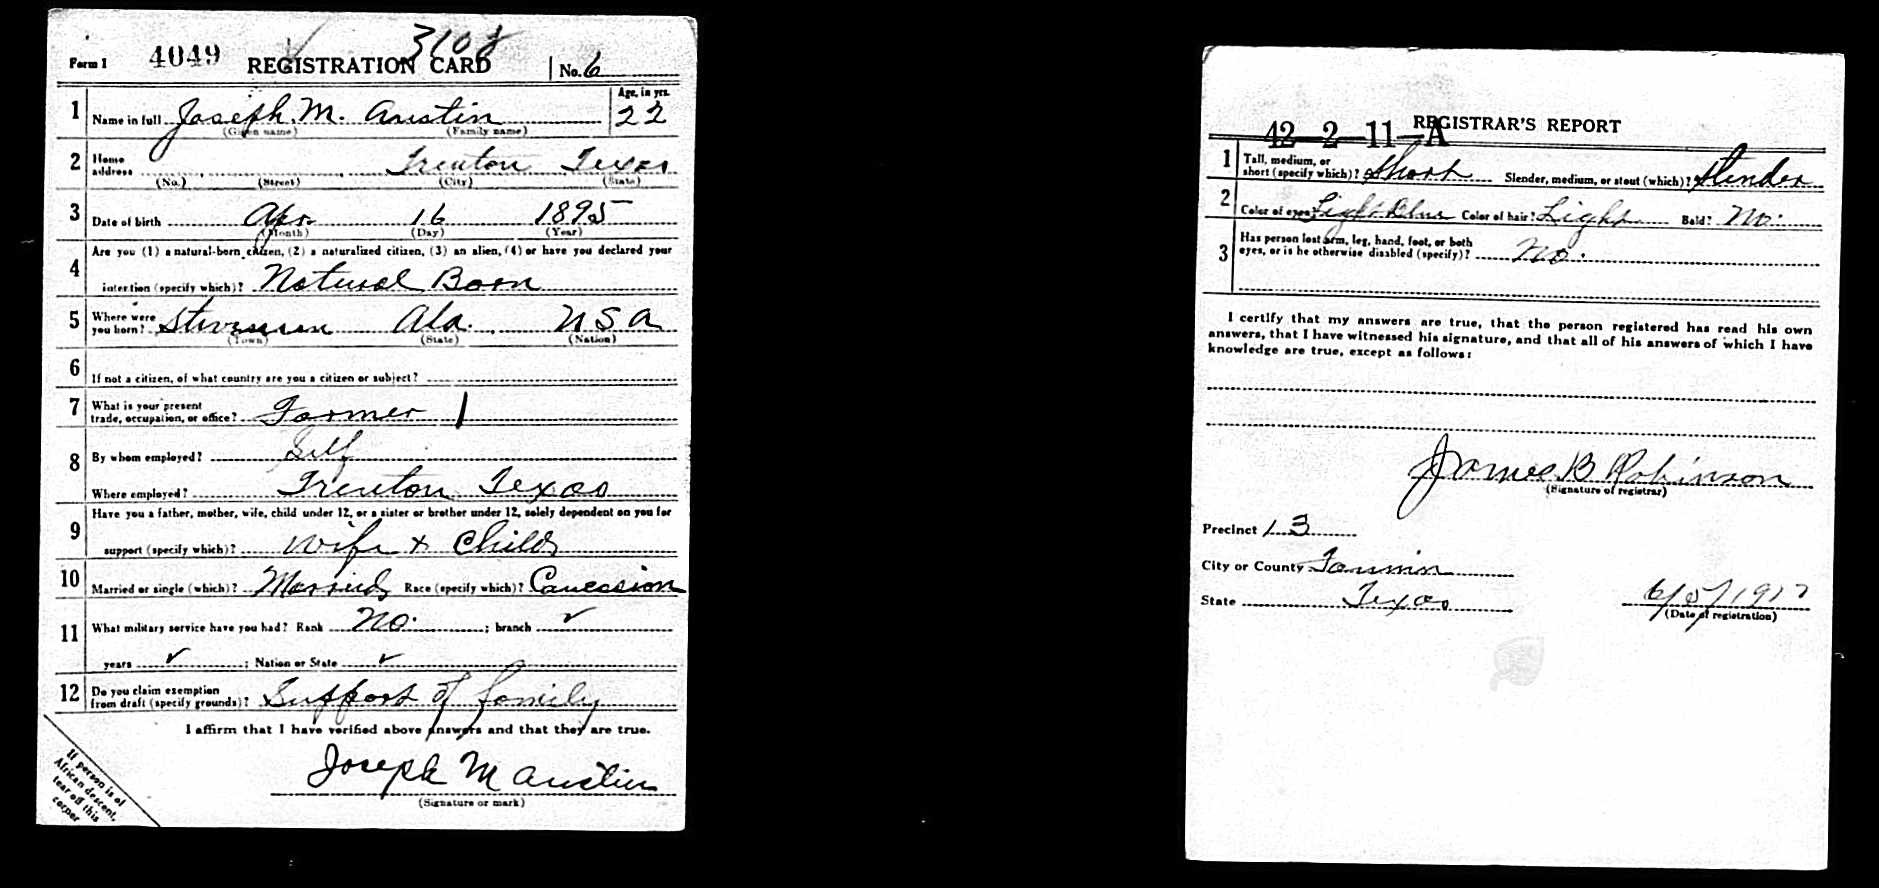 3108
Form 1 4049 REGISTRATION CARD No. 6
1 Name in full Joseph. M. Austin Age, in yrs. 22
(Given name) (Family name)
2 Home address Trenton Texas
(No.) (Street) (City) (State)
3 Date of birth Apr. 16 1895
(Month) (Day) (Year)
Are you (1) a natural-born citizen, (2) a naturalized citizen, (3) an alien, (4) or have you declared your
4 intention (specify which)? Natural Born
5 Where were you born? Stevenson Ala. USA
(Town) (State) (Nation)
6 If not a citizen, of what country are you a citizen or subject?
7 What is your present
trade, occupation, or office? Farmer
8 By whom employed? Self
Where employed? Trenton Texas
Have you a father, mother, wife, child under 12, or a sister or brother under 12, solely dependent on you for
9 support (specify which)? Wife + Child
10 Married or single (which)? Married Race (specify which)? Caucassion
11 What military service have you had? Rank No. ; branch ✓
years ✓ ; Nation or State ✓
12 Do you claim exemption
from draft (specify grounds)? Support of family
I affirm that I have verified above answers and that they are true.
Joseph M Austin
(Signature or mark)
If person is of
African descent,
tear off this
corner
42-2-11-A REGISTRAR'S REPORT
1 Tall, medium, or
short (specify which)? Short Slender, medium, or stout (which)? Slender
2 Color of eyes? Light Blue Color of hair? Light Bald? No.
3 Has person lost arm, leg, hand, foot, or both
eyes, or is he otherwise disabled (specify)? No.
I certify that my answers are true, that the person registered has read his own
answers, that I have witnessed his signature, and that all of his answers of which I have
knowledge are true, except as follows:
James B Robinson
(Signature of registrar)
Precinct 13
City or County Fannin
State Texas 6/5/1917
(Date of registration)